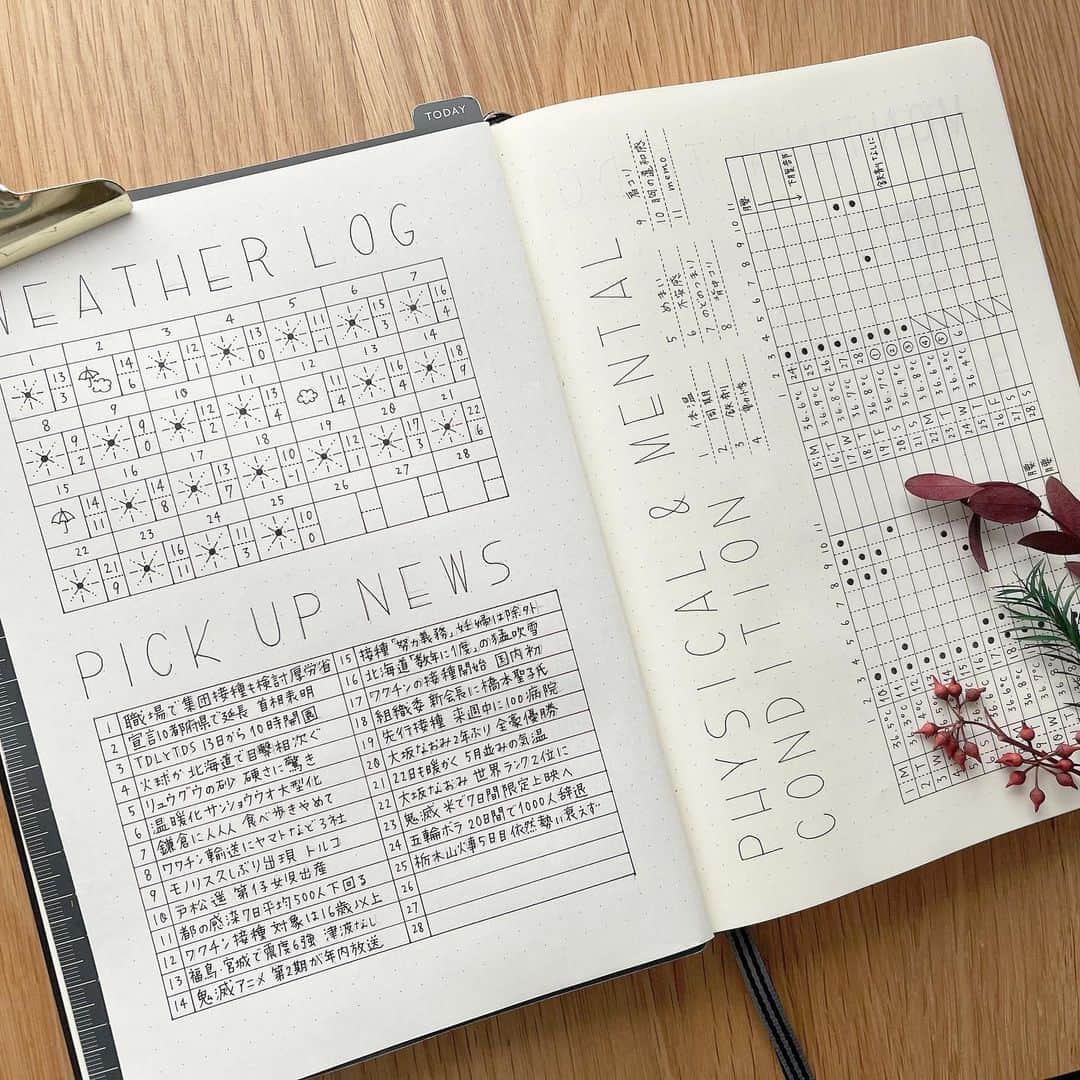 TODAY
WEATHER LOG
1 2 3 4 5 6 7
13 3 14 6 12 1 13 0 11 -1 15 3 16 4
8 9 10 11 12 13 14
9 2 9 0 12 2 13 3 16 4 18 9
15 16 17 18 19 20 21
14 11 14 8 13 7 10 -1 12 1 17 3 22 6
22 23 24 25 26 27 28
21 9 16 11 11 3 10 0
PICK UP NEWS
1 職場で集団接種も検討厚労省
2 宣言10都府県で延長 首相表明
3 TDLとTDS 13日から10時開園
4 火球か 北海道で目撃相次ぐ
5 リュウグウの砂 硬さに驚き
6 温暖化サンショウウオ大型化
7 鎌倉に人人人 食べ歩きやめて
8 ワクチン輸送にヤマトなど3社
9 モノリス久しぶり出現 トルコ
10 戸松遥 第1子女児出産
11 都の感染7日平均500人下回る
12 ワクチン接種 対象は16歳以上
13 福島 宮城で震度6強 津波なし
14 鬼滅アニメ 第2期が年内放送
15 接種「努力義務」妊婦は除外
16 北海道「数年に1度」の猛吹雪
17 ワクチンの接種開始 国内初
18 組織委 新会長に橋本聖子氏
19 先行接種 来週中に100病院
20 大坂なおみ2年ぶり 全豪優勝
21 22日も暖かく 5月並みの気温
22 大坂なおみ 世界ランク2位に
23 鬼滅 米で7日間限定上映へ
24 五輪ボラ 20日間で1000人辞退
25 栃木山火事5日目 依然勢い衰えず
26
27
28
PHYSICAL & MENTAL
CONDITION
1 体温
2 周期
3 鉄剤
4 動悸
5 めまい
6 不安感
7 のどのつまり
8 背中
9 肩こり
10 胸の違和感
11 memo
1 2 3 4 5 6 7 8 9 10 11
1 M 36.5℃ 10
2 T
3 W
4 T
1 2 3 4 5 6 7 8 9 10 11
15 M 36.6℃ 24
16 T 36.9℃ 25
17 W 36.4℃ 26
18 T 36.8℃ 27
19 F 36.7℃ 28
20 S 36.8℃ ①
21 S 36.9℃ ②
22 M 36.8℃ ③
23 T 36.6℃ ④
24 W 36.3℃ ⑤
25 T 36.4℃ 6
26 F
27 S
28 S
腰
下腹部
鉄剤なしに
腰
腰